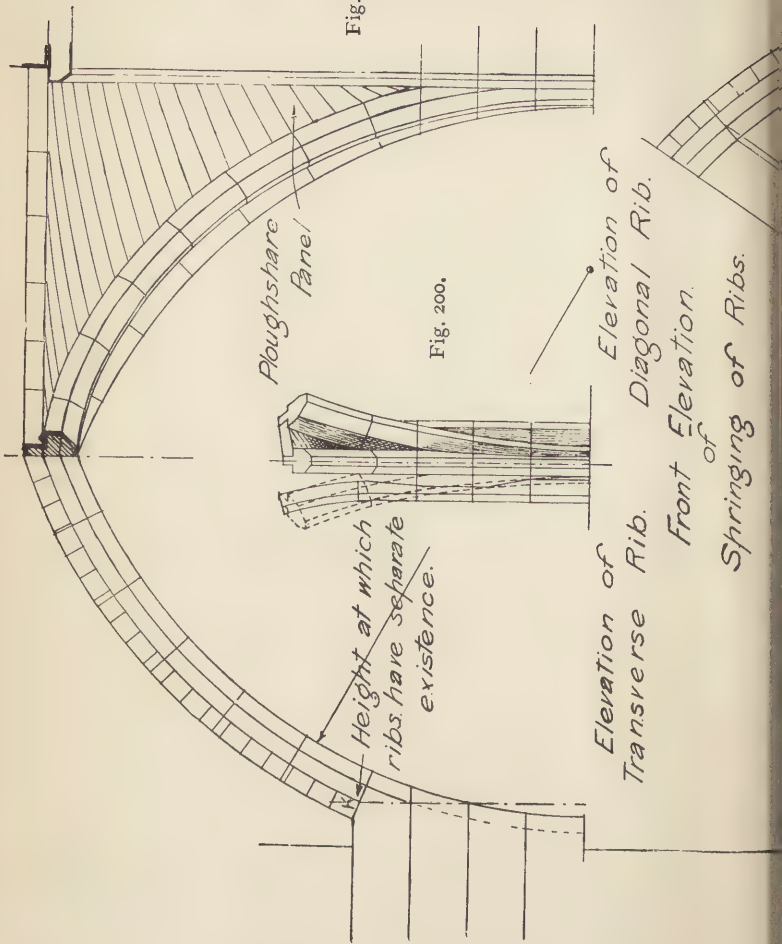 Fig.
Ploughshare
Panel
Fig. 200.
Height at which
ribs have separate
existence.
K
Elevation of
Transverse Rib.
Elevation of
Diagonal Rib.
Front Elevation
of
Springing of Ribs.